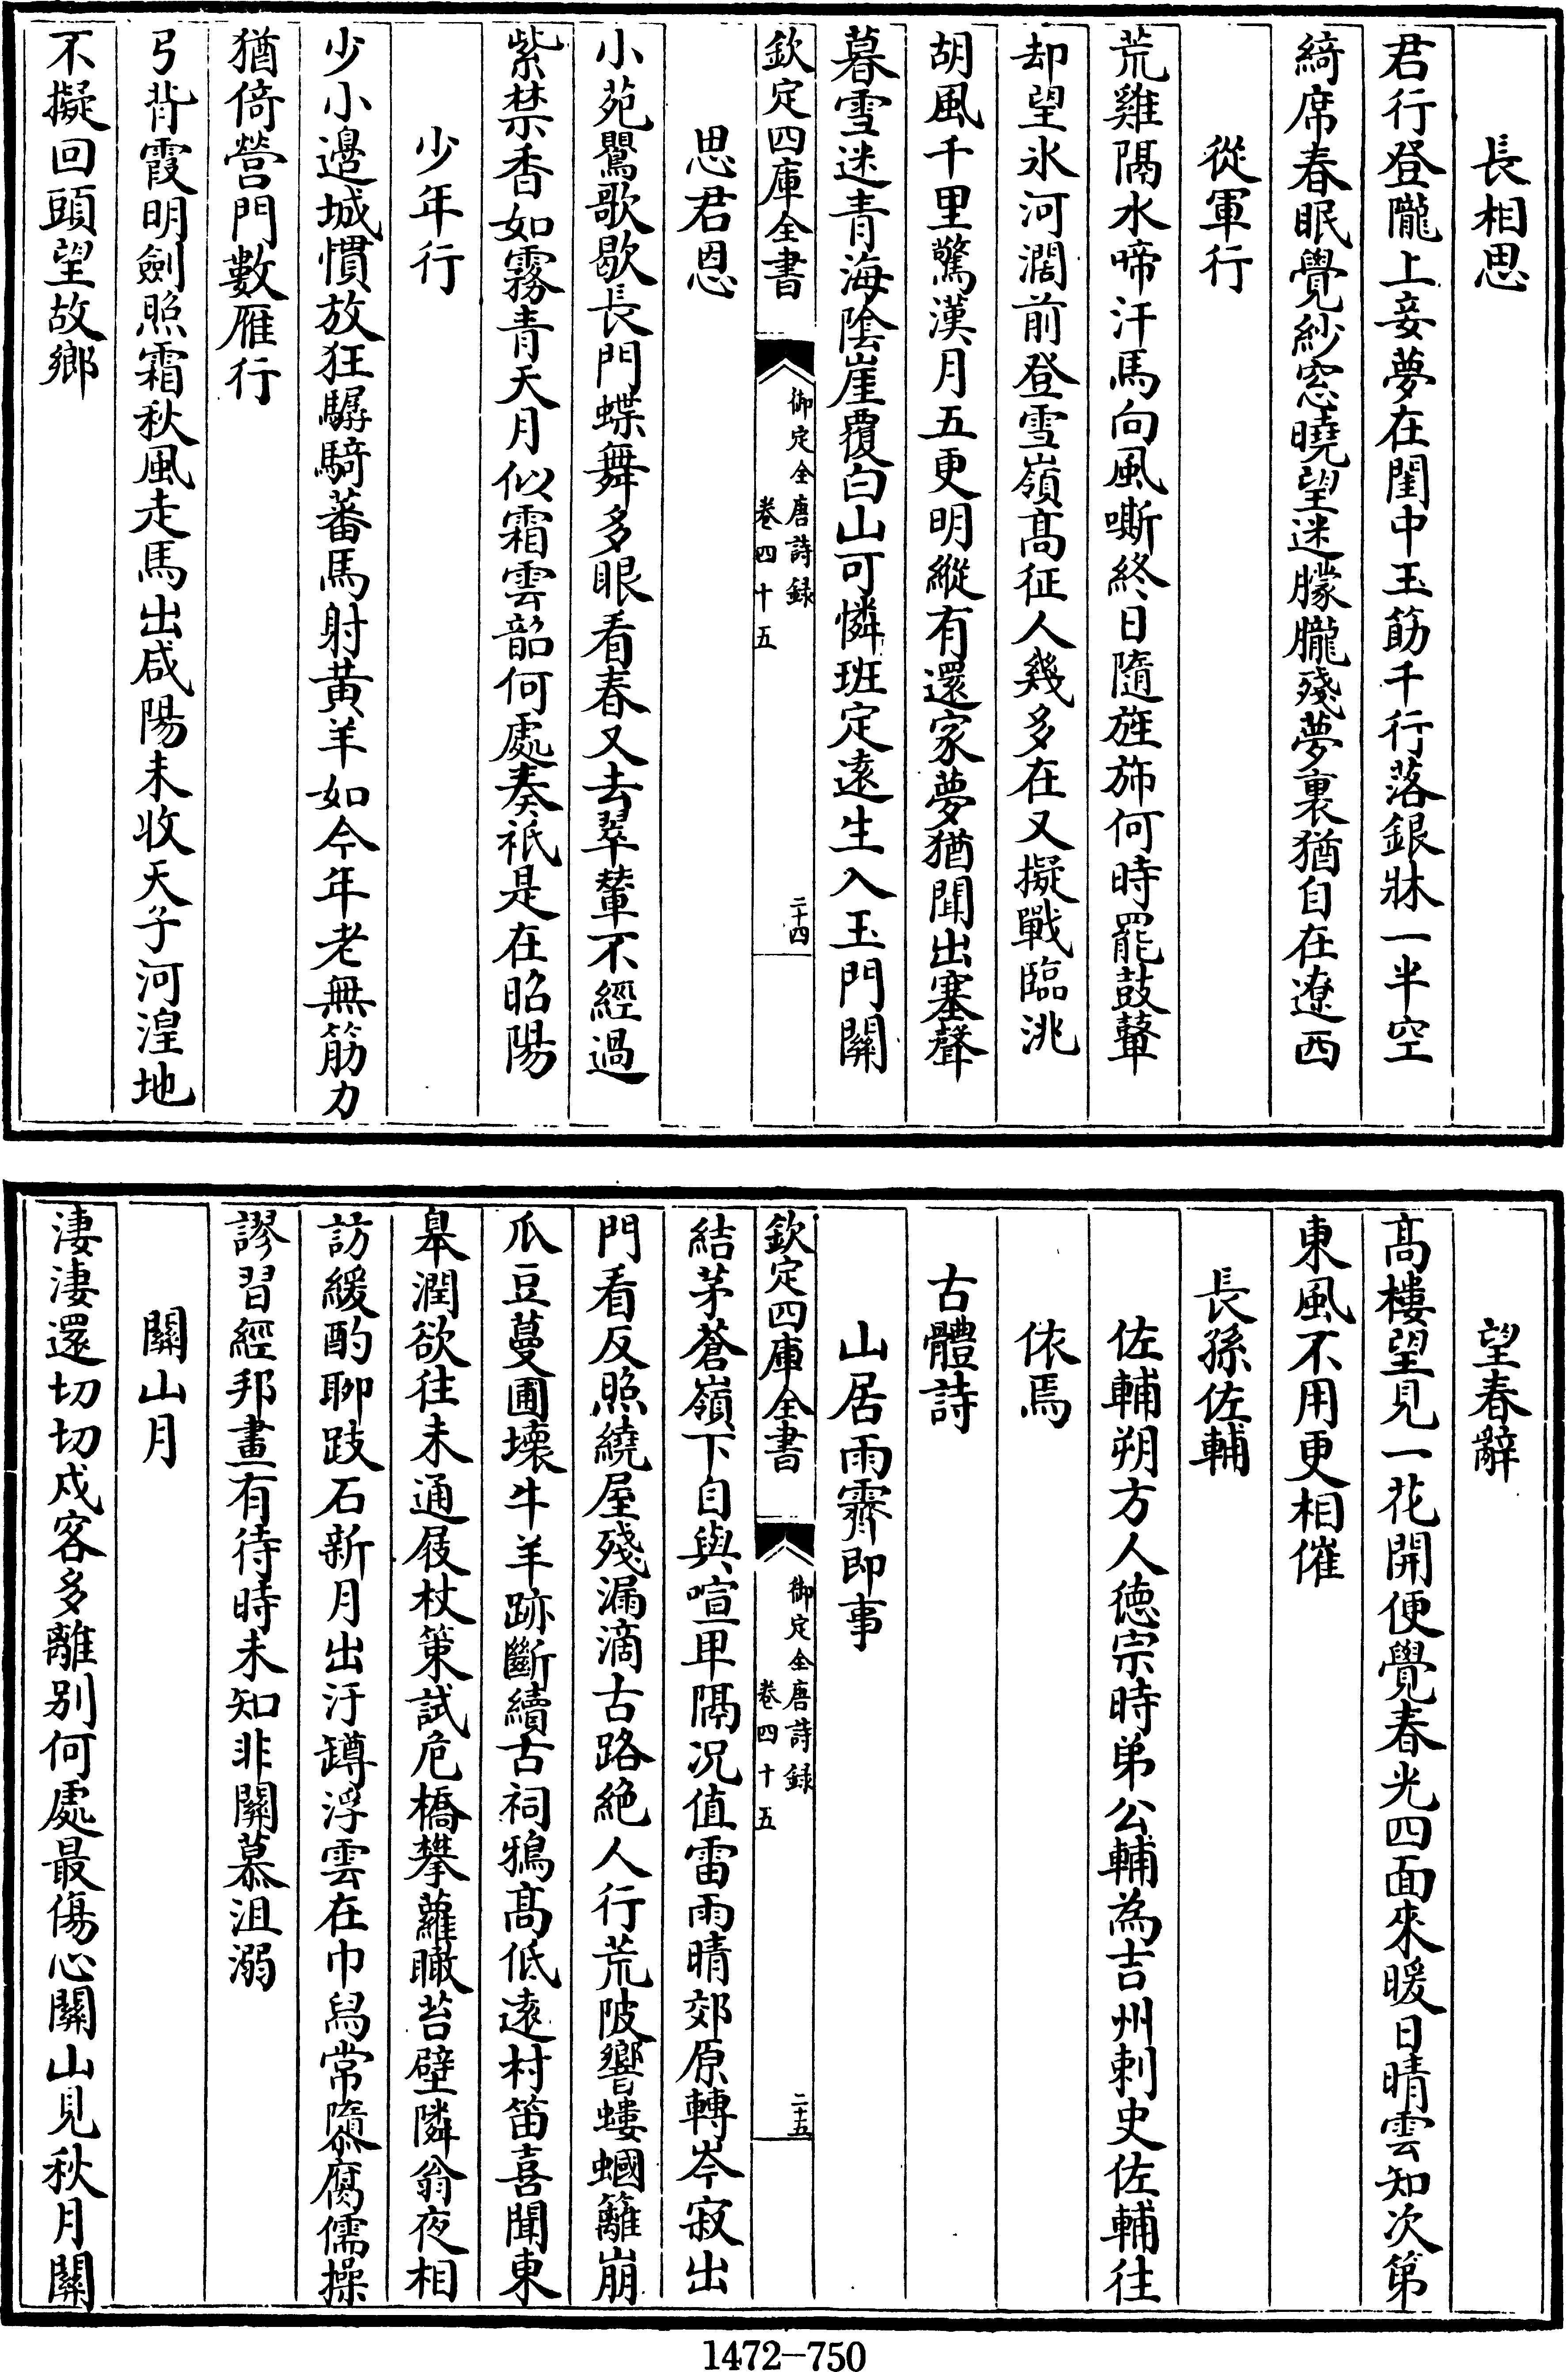 長相思
君行登隴上妾夢在閨中玉筯千行落銀牀一半空
綺席春眠覺紗窓曉望迷朦朧殘夢裏猶自在遼西
從軍行
荒雞隔水啼汗馬向風嘶終日隨旌斾何時罷鼓鼙
却望氷河濶前登雪嶺髙征人幾多在又擬戰臨洮
胡風千里驚漢月五更明縱有還家夢猶聞出塞聲
暮雪迷青海陰崖覆白山可憐班定逺生入玉門關
欽定四庫全書
御定全唐詩録
卷四十五
二十四
思君恩
小苑鸎歌歇長門蝶舞多眼看春又去翠輦不經過
紫禁香如霧青天月似霜雲韶何處奏祇是在昭陽
少年行
少小邉城慣放狂驏騎蕃馬射黃羊如今年老無筋力
猶倚營門數雁行
弓背霞明劍照霜秋風走馬出咸陽未收天子河湟地
不擬回頭望故鄉
望春辭
髙樓望見一花開便覺春光四面來暖日晴雲知次第
東風不用更相催
長孫佐輔
佐輔朔方人徳宗時弟公輔為吉州刺史佐輔往
依焉
古體詩
山居雨霽即事
欽定四庫全書
御定全唐詩録
卷四十五
二十五
結茅蒼嶺下自與喧卑隔况值雷雨晴郊原轉岑寂出
門看反照繞屋殘漏滴古路絶人行荒陂響螻蟈籬崩
瓜豆蔓圃壊牛羊跡斷續古祠鴉髙低逺村笛喜聞東
皋潤欲往未通屐杖策試危橋攀蘿瞰苔壁隣翁夜相
訪緩酌聊跂石新月出汙罇浮雲在巾舃常隳腐儒操
謬習經邦畫有待時未知非關慕沮溺
關山月
淒淒還切切戍客多離別何處最傷心關山見秋月關
1472-750